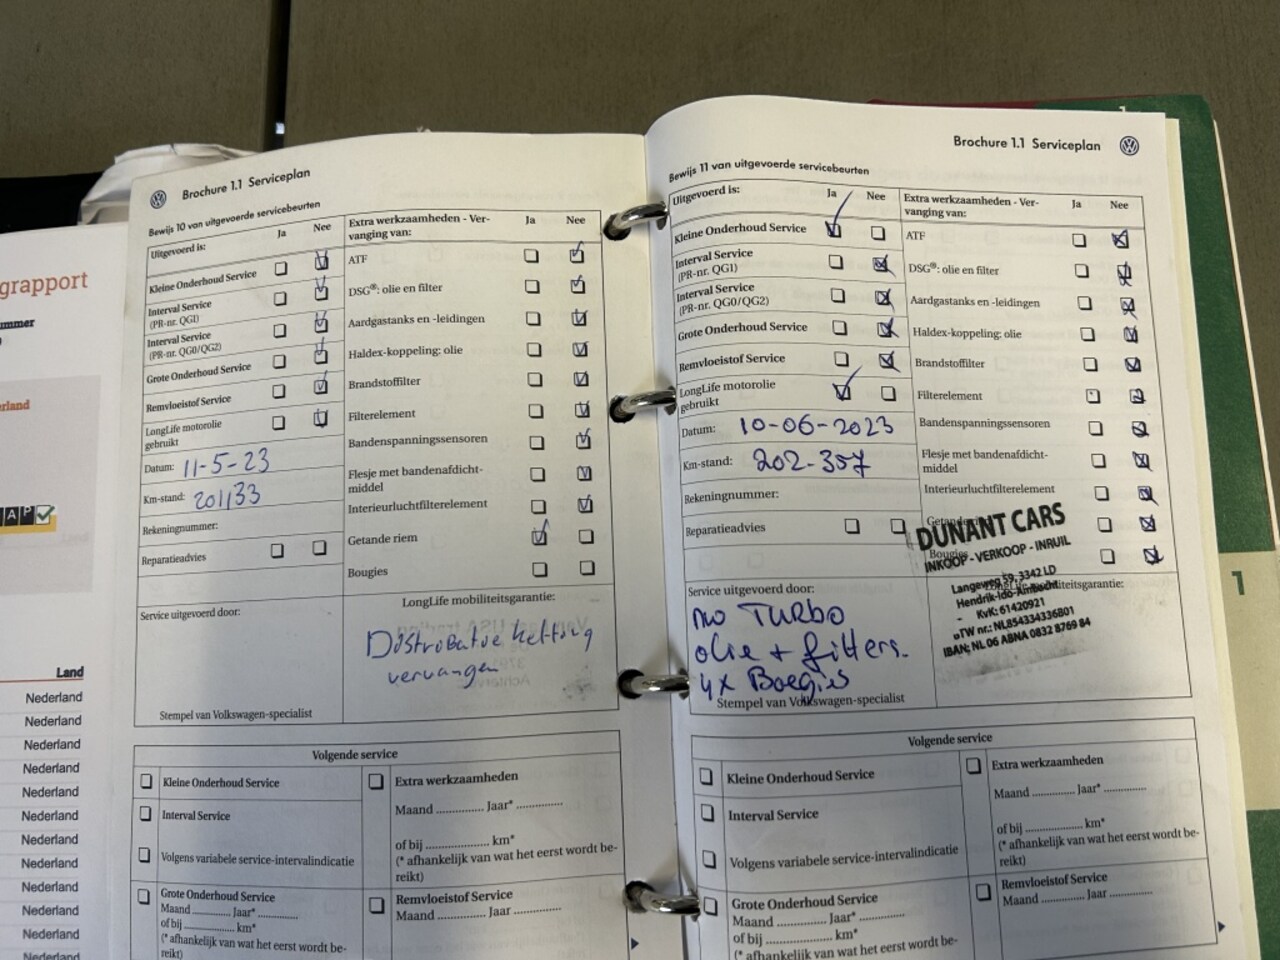 grapport
ummer
erland
AP
Land
Nederland
Nederland
Nederland
Nederland
Nederland
Nederland
Nederland
Nederland
Nederland
Nederland
Nederland
Nederland
Brochure 1.1 Serviceplan
Bewijs 10 van uitgevoerde servicebeurten
Uitgevoerd is:
Ja
Nee
Kleine Onderhoud Service
Interval Service
(PR-nr. QG1)
Interval Service
(PR-nr. QG0/QG2)
Grote Onderhoud Service
Remvloeistof Service
LongLife motorolie
gebruikt
Datum: 11-5-23
Km-stand: 201133
Rekeningnummer:
Reparatieadvies
Extra werkzaamheden - Ver-
vanging van:
Ja
Nee
ATF
DSG®: olie en filter
Aardgastanks en -leidingen
Haldex-koppeling: olie
Brandstoffilter
Filterelement
Bandenspanningssensoren
Flesje met bandenafdicht-
middel
Interieurluchtfilterelement
Getande riem
Bougies
Service uitgevoerd door:
Stempel van Volkswagen-specialist
LongLife mobiliteitsgarantie:
Distributie ketting
vervangen
Volgende service
Kleine Onderhoud Service
Interval Service
Volgens variabele service-intervalindicatie
Grote Onderhoud Service
Maand ............. Jaar* .............
of bij ...................... km*
(* afhankelijk van wat het eerst wordt be-
reikt)
Extra werkzaamheden
Maand .............. Jaar* ..............
of bij ...................... km*
(* afhankelijk van wat het eerst wordt be-
reikt)
Remvloeistof Service
Maand .............. Jaar ..............
Brochure 1.1 Serviceplan
Bewijs 11 van uitgevoerde servicebeurten
Uitgevoerd is:
Ja
Nee
Kleine Onderhoud Service
Interval Service
(PR-nr. QG1)
Interval Service
(PR-nr. QG0/QG2)
Grote Onderhoud Service
Remvloeistof Service
LongLife motorolie
gebruikt
Datum: 10-06-2023
Km-stand: 202-357
Rekeningnummer:
Reparatieadvies
Extra werkzaamheden - Ver-
vanging van:
Ja
Nee
ATF
DSG®: olie en filter
Aardgastanks en -leidingen
Haldex-koppeling: olie
Brandstoffilter
Filterelement
Bandenspanningssensoren
Flesje met bandenafdicht-
middel
Interieurluchtfilterelement
Bougies
DUNANT CARS
INKOOP - VERKOOP - INRUIL
Langeweg 59, 3342 LD
Hendrik-Ido-Ambacht
KvK: 61420921
BTW nr.: NL854334336B01
IBAN: NL 06 ABNA 0832 8769 84
Service uitgevoerd door:
TURBO
olie + filters.
4x Boegies
Stempel van Volkswagen-specialist
Volgende service
Kleine Onderhoud Service
Interval Service
Volgens variabele service-intervalindicatie
Grote Onderhoud Service
Maand ............. Jaar* .............
of bij ...................... km*
(* afhankelijk van wat het eerst wordt be-
Extra werkzaamheden
Maand .............. Jaar* ..............
of bij ...................... km*
(* afhankelijk van wat het eerst wordt be-
reikt)
Remvloeistof Service
Maand .............. Jaar ..............
1